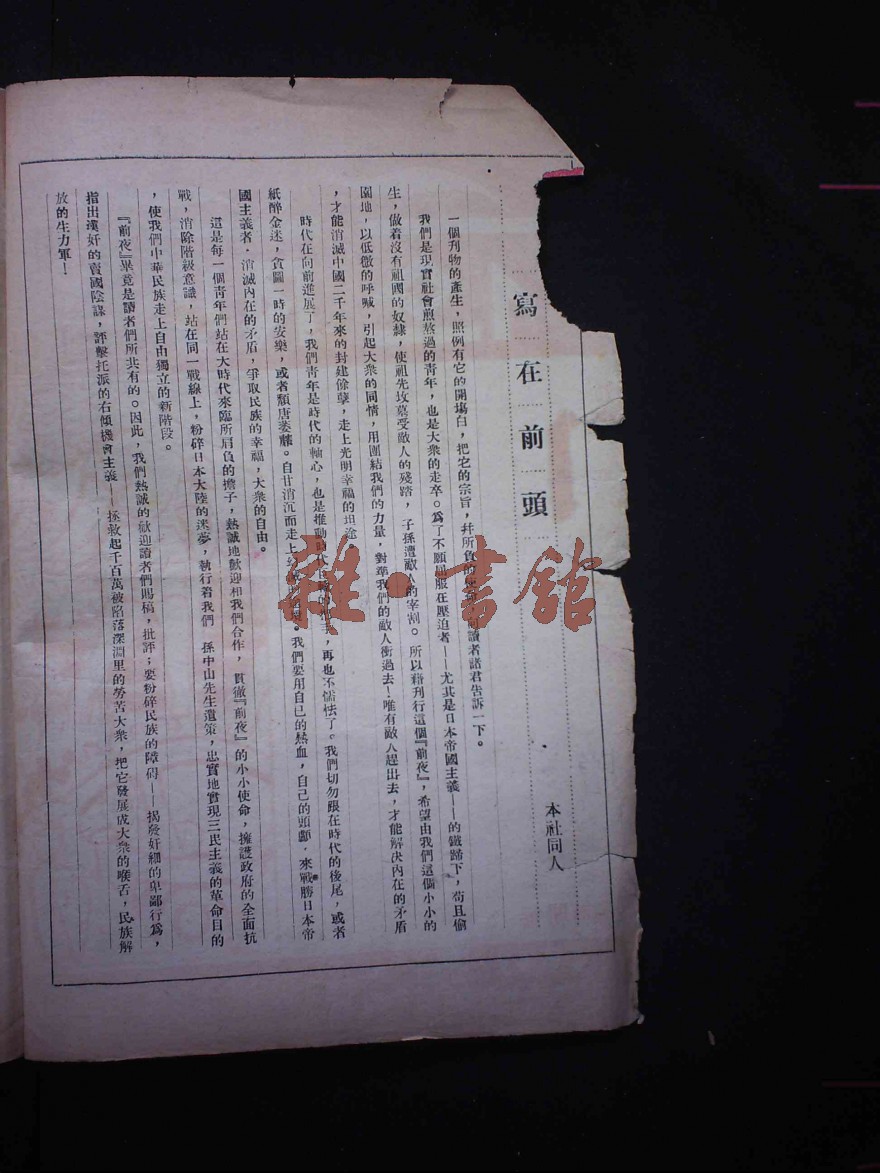 寫在前頭
本社同人
一個刊物的產生，照例有它的開塲白，把它的宗旨，幷所負的 讀者諸君告訴一下。
我們是現實社會煎熬過的青年，也是大衆的走卒。爲了不願屈服在壓迫者——尤其是日本帝國主義——的鐵蹄下，苟且偷
生，做着沒有祖國的奴隸，使祖先坟墓受敵人的殘踏，子孫遭敵人的宰割。所以藉刊行這個『前夜』，希望由我們這個小小的
園地，以低微的呼喊，引起大衆的同情，用團結我們的力量，對準我們的敵人衝過去！唯有敵人趕出去，才能解决內在的矛盾
，才能消滅中國二千年來的封建餘孽，走上光明幸福的坦途。
時代在向前進展了，我們青年是時代的軸心，也是推動時代 ，再也不懦怯了。我們切勿跟在時代的後尾，或者
紙醉金迷，貪圖一時的安樂，或者頽唐萎靡。自甘消沉而走上 。我們要用自己的熱血，自己的頭顱，來戰勝日本帝
國主義者，消滅內在的矛盾，爭取民族的幸福，大衆的自由。
這是每一個青年們站在大時代來臨所肩負的擔子，熱誠地歡迎和我們合作，貫徹『前夜』的小小使命，擁護政府的全面抗
戰，消除階級意識，站在同一戰線上，粉碎日本大陸的迷夢，執行着我們 孫中山先生遺策，忠實地實現三民主義的革命目的
，使我們中華民族走上自由獨立的新階段。
『前夜』畢竟是讀者們所共有的。因此，我們熱誠的歡迎讀者們賜稿，批評；要粉碎民族的障碍——揭發奸細的卑鄙行爲，
指出漢奸的賣國陰謀，評擊托派的右傾機會主義——拯救起千百萬被陷落深淵里的勞苦大衆，把它發展成大衆的喉舌，民族解
放的生力軍！
雜·書館